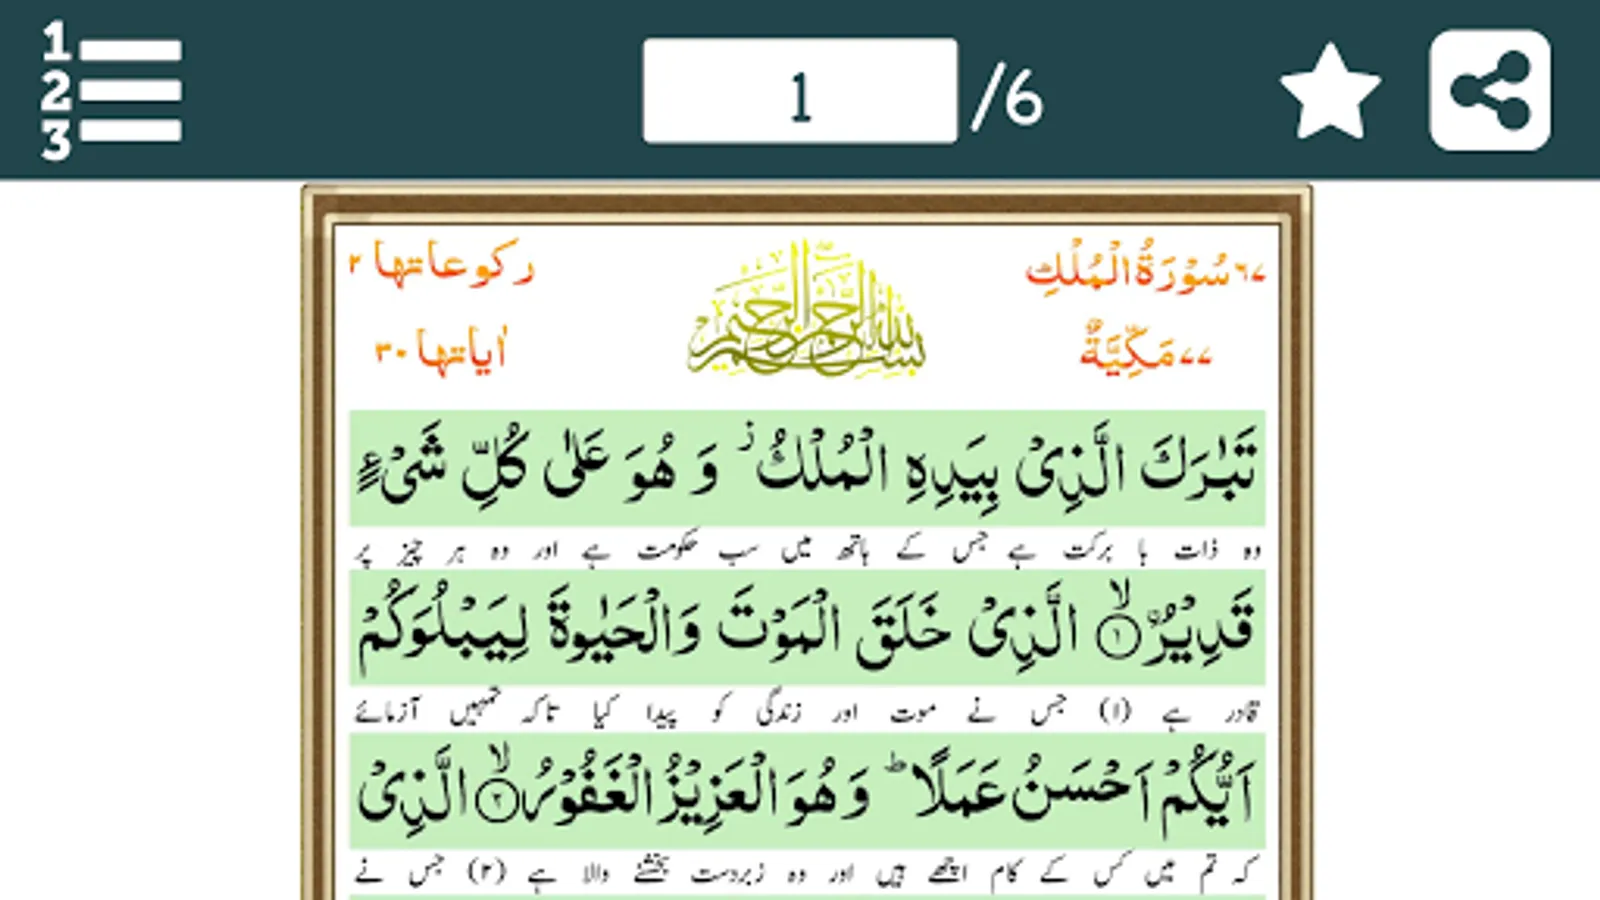 1
2
3
1 /6
٦٧ سُوْرَةُ الْمُلْكِ
رکوعاتها ٢
بسم الله الرحمن الرحيم
٧٧ مَکِّیَّةٌ
اٰیاتها ٣٠
تَبٰرَكَ الَّذِیْ بِیَدِهِ الْمُلْكُ ؗ وَ هُوَ عَلٰى كُلِّ شَیْءٍ
وہ ذات با برکت ہے جس کے ہاتھ میں سب حکومت ہے اور وہ ہر چیز پر
قَدِیْرُ ۙ﴿۱﴾ الَّذِیْ خَلَقَ الْمَوْتَ وَالْحَیٰوةَ لِیَبْلُوَكُمْ
قادر ہے (۱) جس نے موت اور زندگی کو پیدا کیا تاکہ تمہیں آزمائے
اَیُّكُمْ اَحْسَنُ عَمَلًا ؕ وَ هُوَ الْعَزِیْزُ الْغَفُوْرُ ۙ﴿۲﴾ الَّذِیْ
کہ تم میں کس کے کام اچھے ہیں اور وہ زبردست بخشنے والا ہے (۲) جس نے